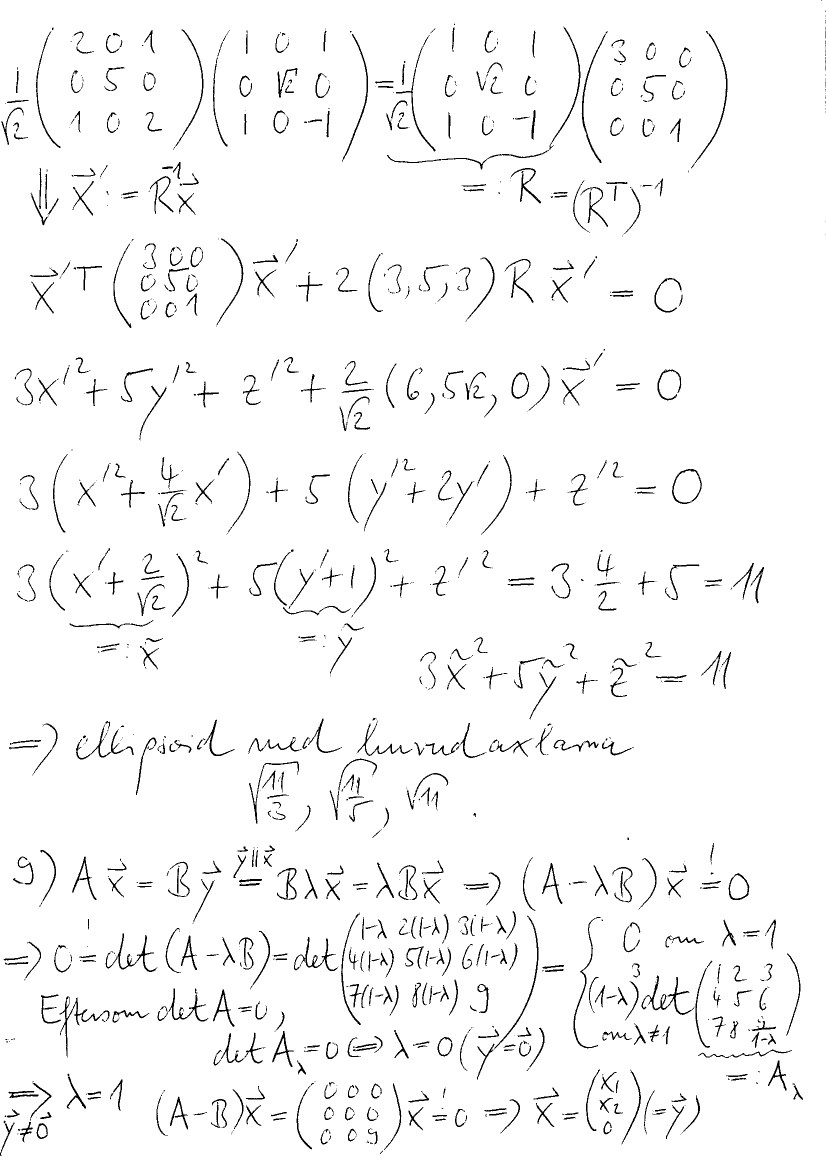 1/√2 (2 0 1; 0 5 0; 1 0 2) (1 0 1; 0 √2 0; 1 0 -1) = 1/√2 (1 0 1; 0 √2 0; 1 0 -1) (3 0 0; 0 5 0; 0 0 1)
⇓ x⃗' := R⁻¹x⃗ =: R = (Rᵀ)⁻¹
x⃗'ᵀ (3 0 0; 0 5 0; 0 0 1) x⃗' + 2(3,5,3) R x⃗' = 0
3x'² + 5y'² + z'² + 2/√2 (6, 5√2, 0) x⃗' = 0
3(x'² + 4/√2 x') + 5(y'² + 2y') + z'² = 0
3(x' + 2/√2)² + 5(y'+1)² + z'² = 3·4/2 + 5 = 11
=: x̃ =: ỹ
3x̃² + 5ỹ² + z̃² = 11
=> ellipsoid med huvudaxlarna
√(11/3), √(11/5), √11 .
9) A x⃗ = B y⃗ =(y⃗∥x⃗) Bλx⃗ = λBx⃗ => (A-λB)x⃗ =! 0
=> 0 =! det(A-λB) = det (1-λ 2(1-λ) 3(1-λ); 4(1-λ) 5(1-λ) 6(1-λ); 7(1-λ) 8(1-λ) 9) = { 0 om λ=1; (1-λ)³ det (1 2 3; 4 5 6; 7 8 9/(1-λ)) om λ≠1
=: A_λ
Eftersom det A=0,
det A_λ=0 <=> λ=0 (y⃗=0⃗)
=> (y⃗≠0⃗) λ=1 (A-B)x⃗ = (0 0 0; 0 0 0; 0 0 9) x⃗ =! 0 => x⃗ = (x₁; x₂; 0) (=y⃗)